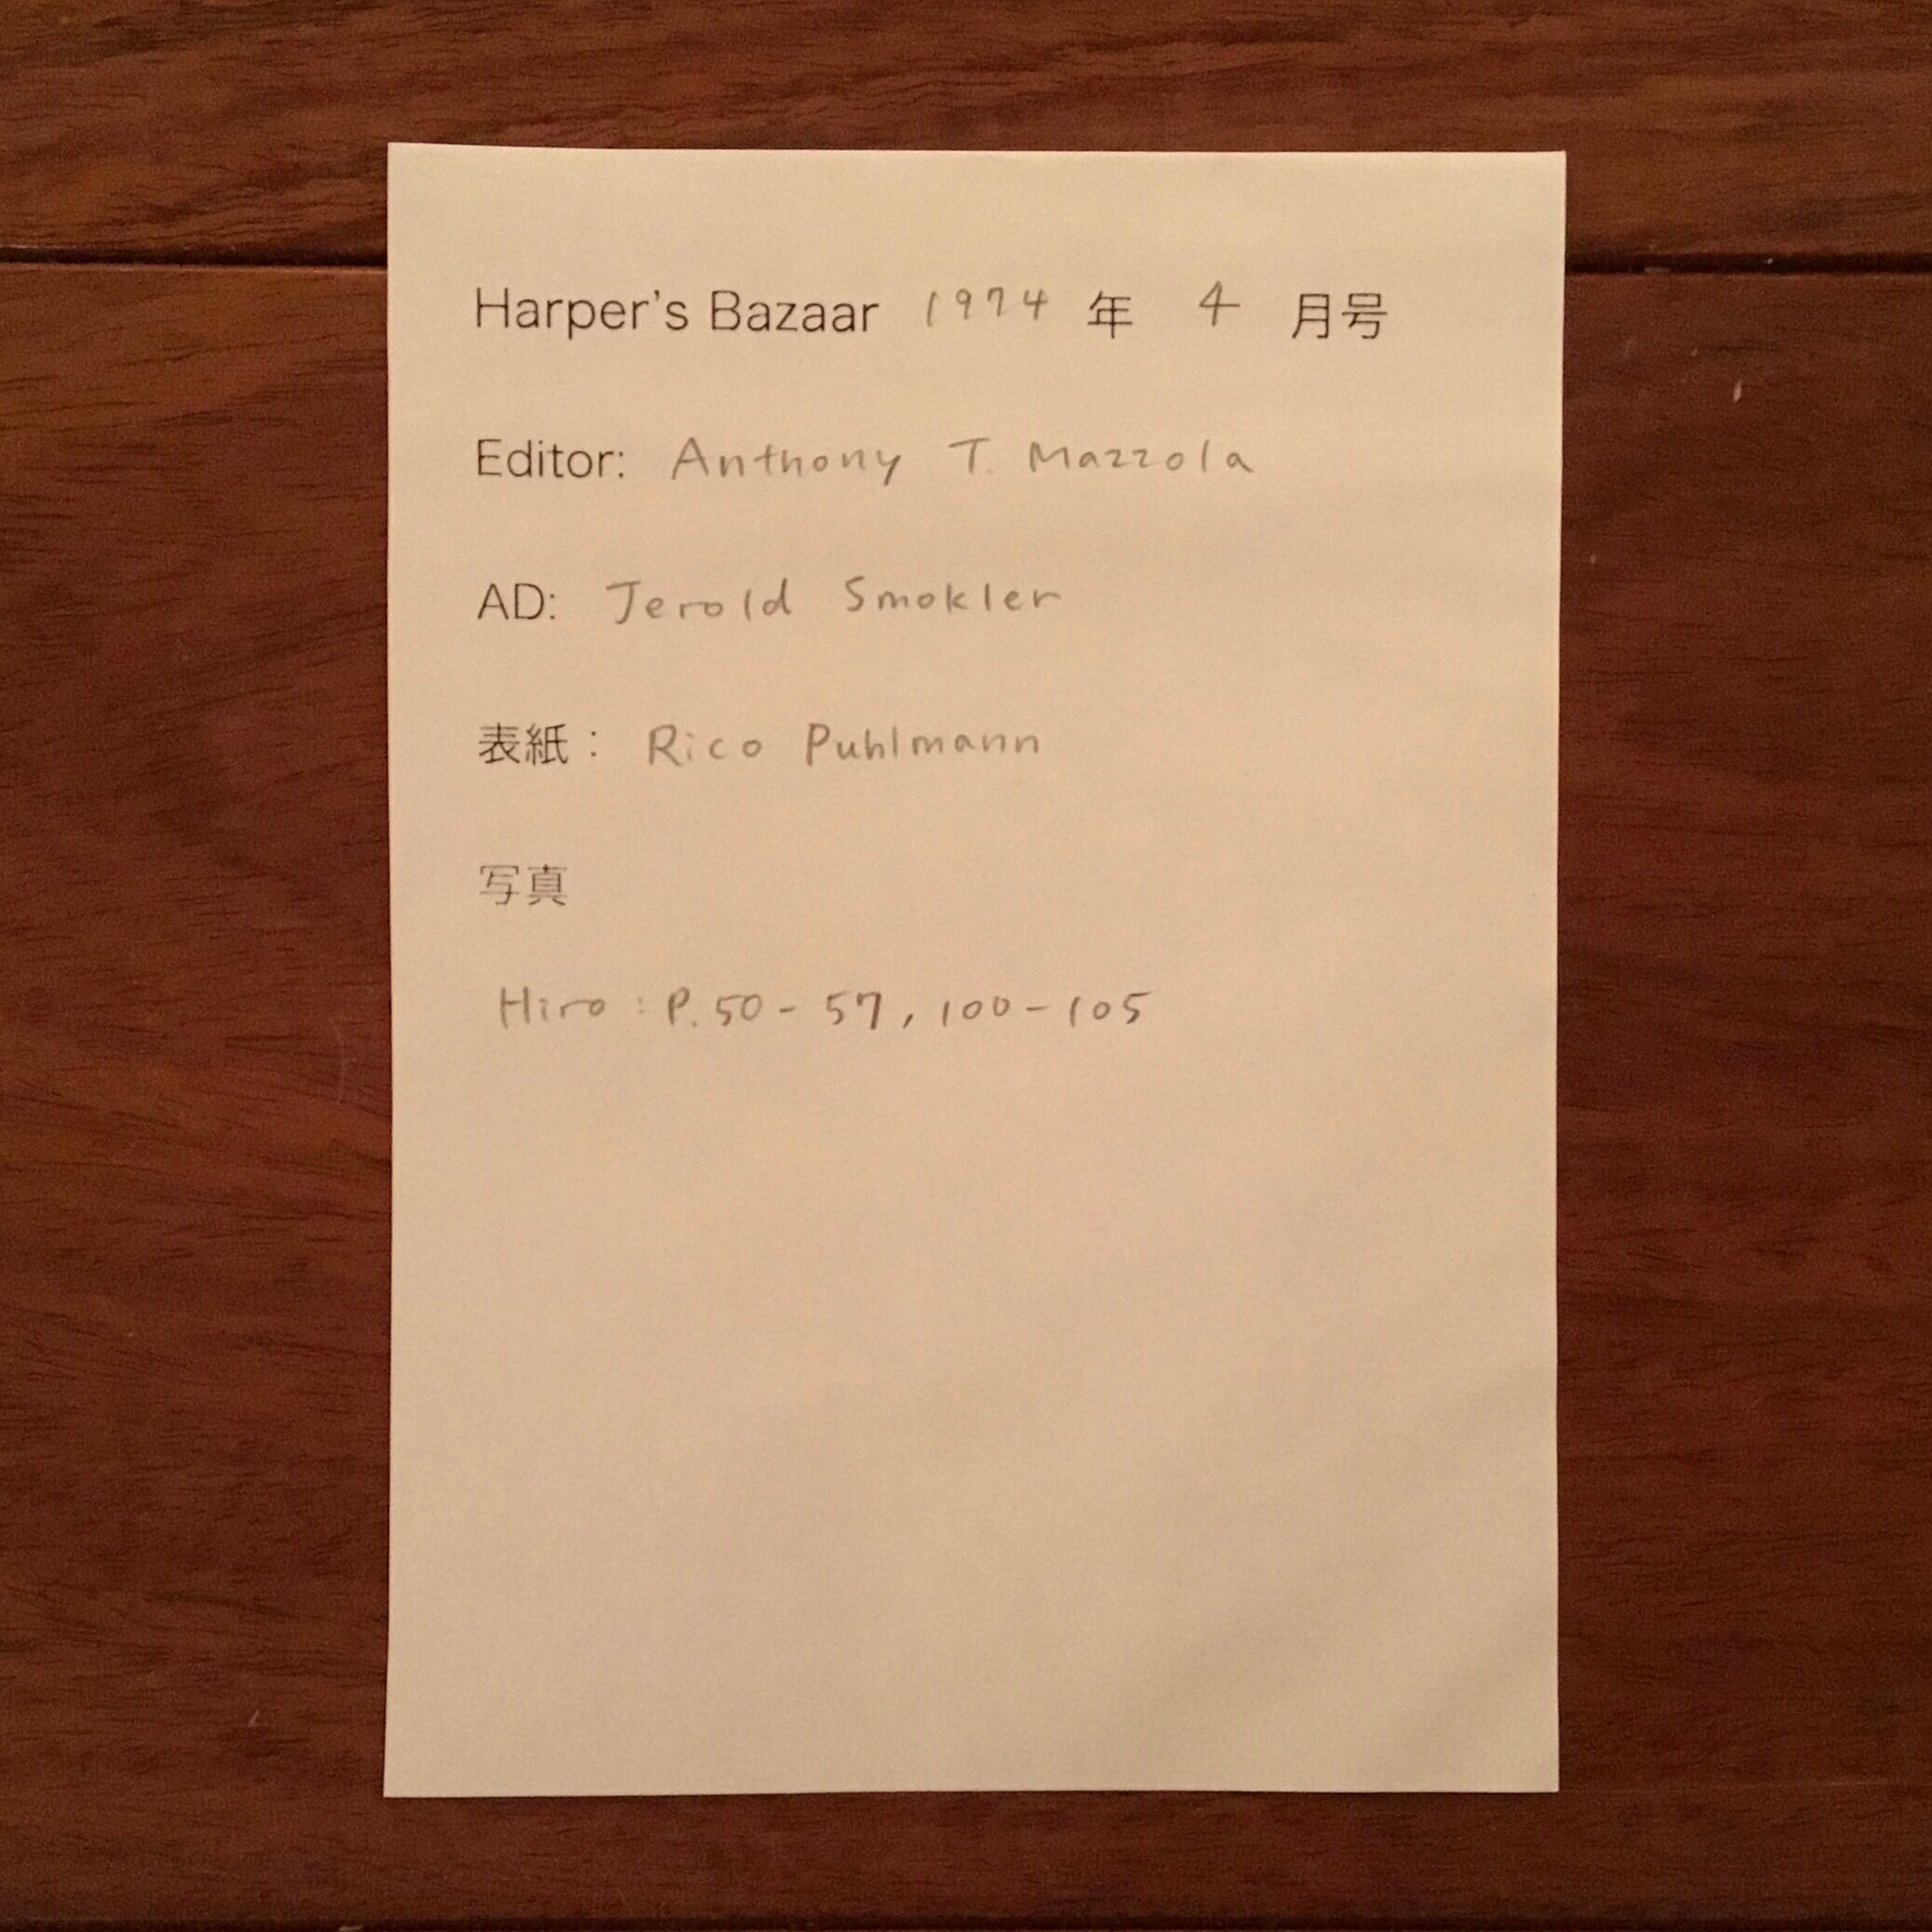 Harper's Bazaar 1974 年 4 月号
Editor: Anthony T. Mazzola
AD: Jerold Smokler
表紙： Rico Puhlmann
写真
Hiro : P. 50 - 57, 100 - 105